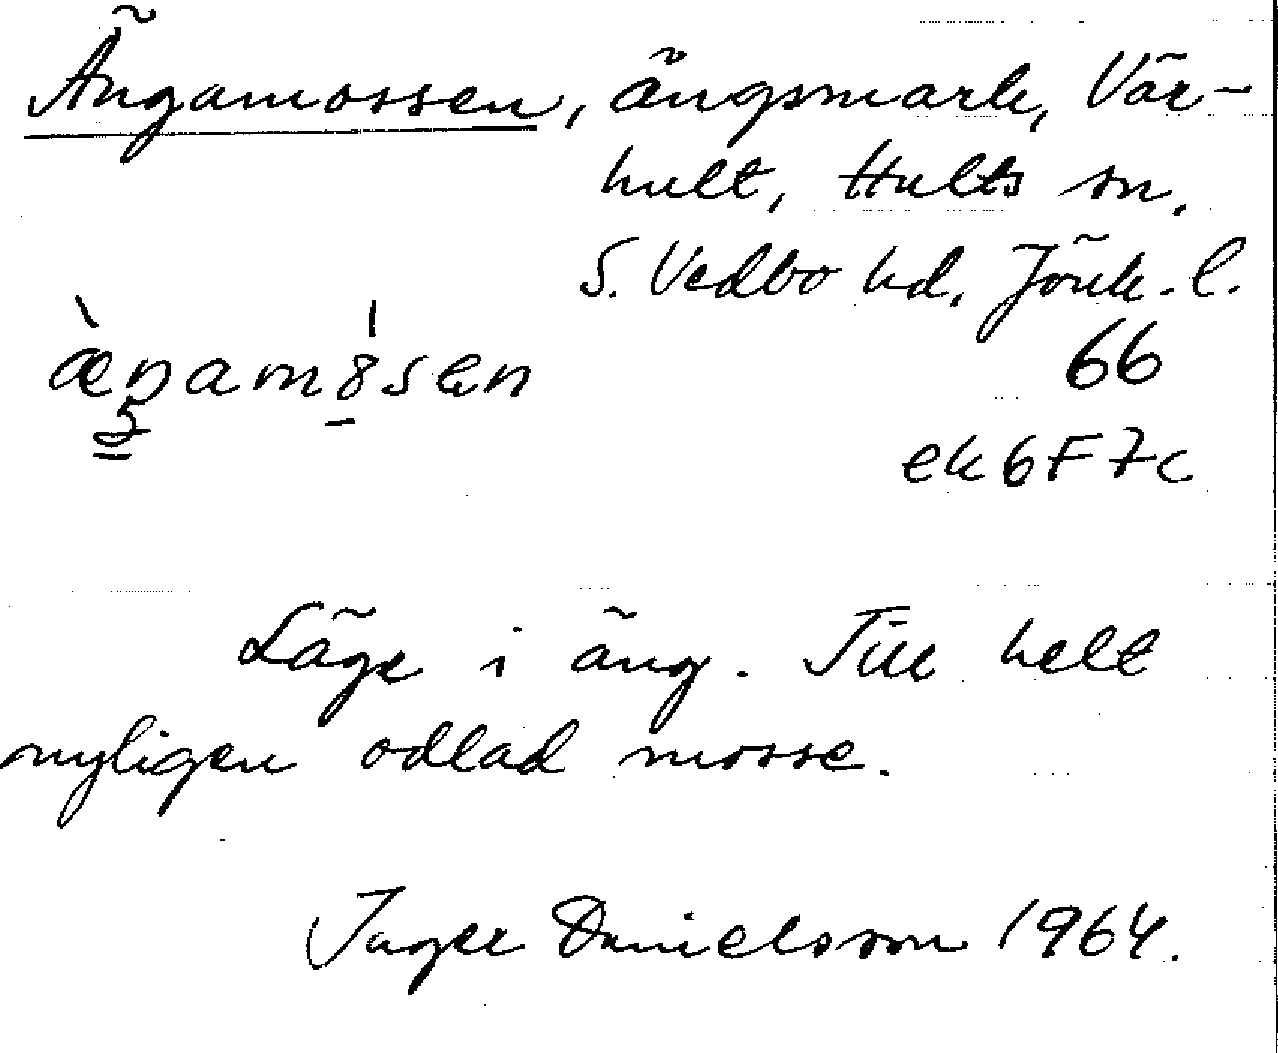 Ängamossen, ängsmark, Vär-
hult, Hults sn,
S. Vedbo hd, Jönk. l.
æŋam8sen
66
ek 6F 7c
Läge i äng. Till helt
nyligen odlad mosse.
Inger Danielsson 1964.